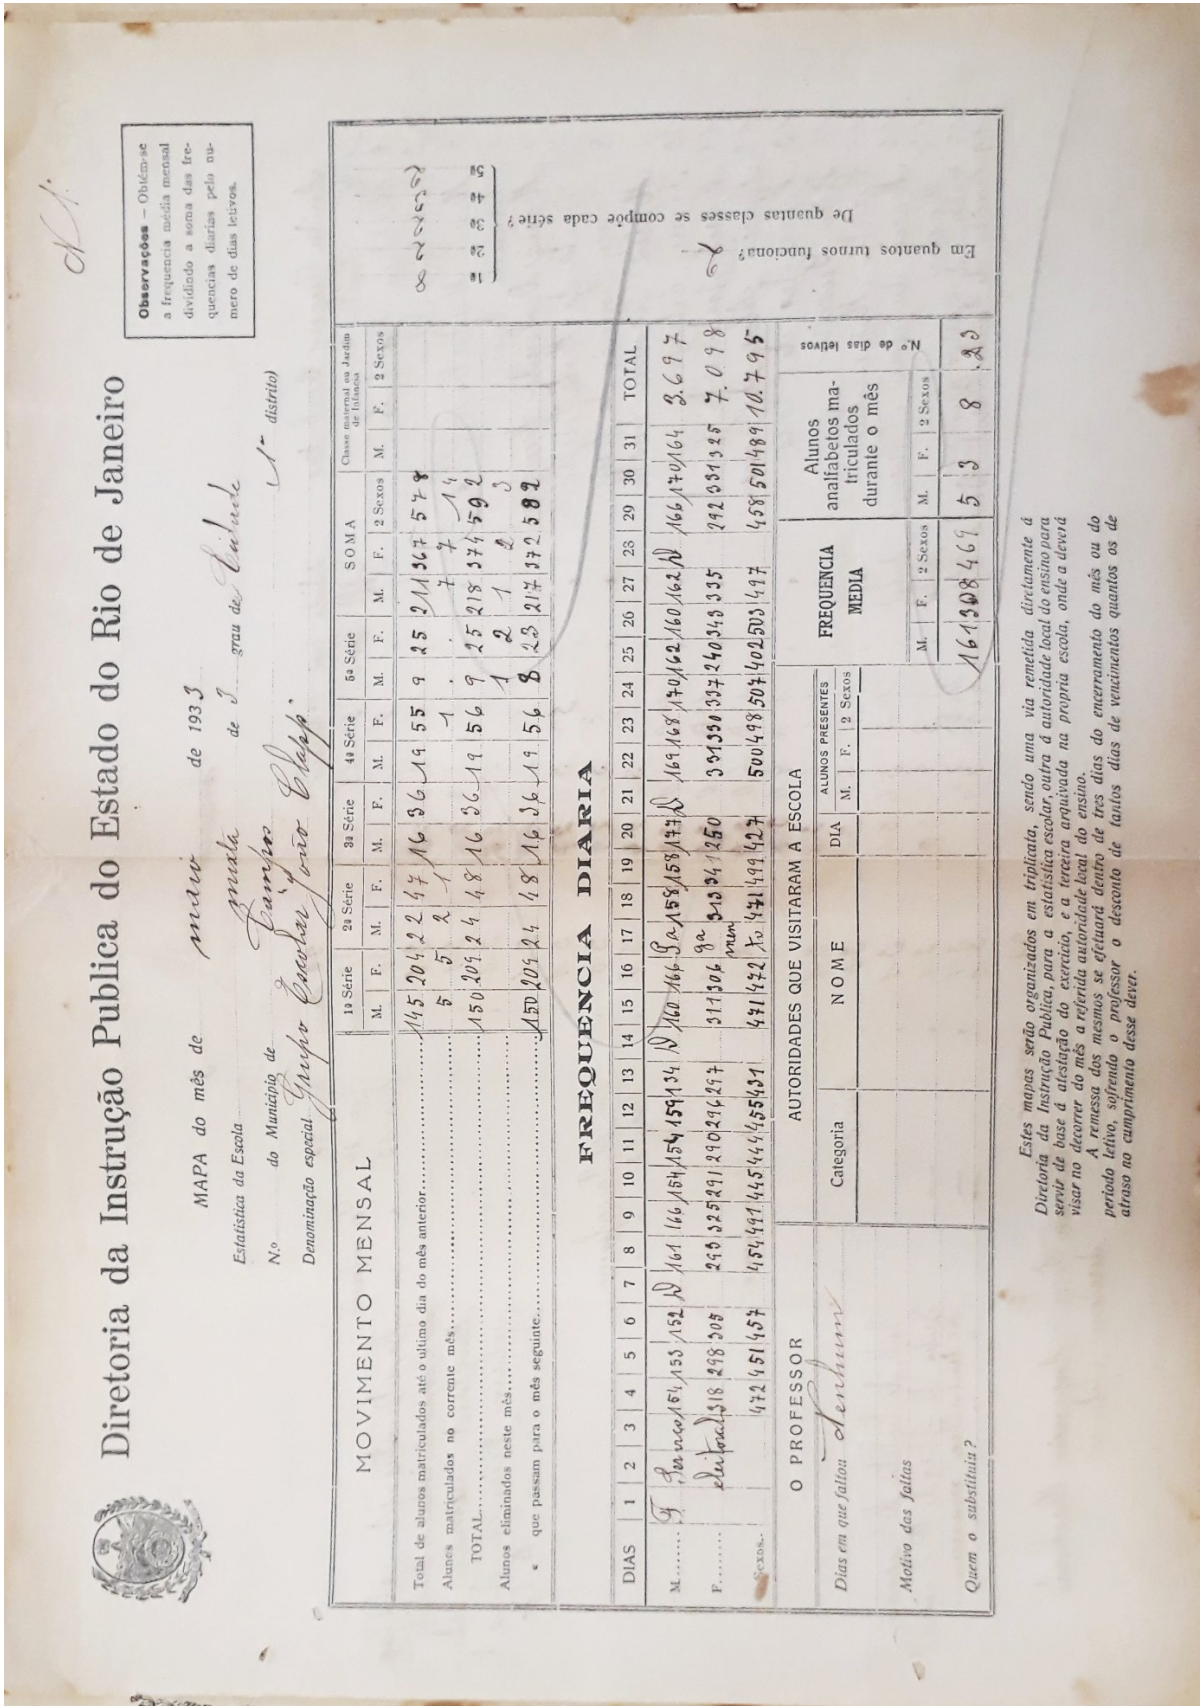 N 1.
Diretoria da Instrução Publica do Estado do Rio de Janeiro
Observações — Obtém-se
a frequencia média mensal
dividindo a soma das fre-
quencias diarias pelo nu-
mero de dias letivos.
MAPA do mês de maio de 1933
Estatistica da Escola mixta de 3 grau de
N.o do Municipio de Campos 1º distrito)
Denominação especial Grupo Escolar "João Clapp"
MOVIMENTO MENSAL 1ª Série 2ª Série 3ª Série 4ª Série 5ª Série SOMA Classe maternal ou Jardim de Infancia
M. F. M. F. M. F. M. F. M. F. M. F. 2 Sexos M. F. 2 Sexos
Total de alunos matriculados até o ultimo dia do mês anterior 145 204 22 47 16 36 19 55 9 25 211 367 578
Alunos matriculados no corrente mês 5 5 2 1 1 7 7 14
TOTAL 150 209 24 48 16 36 19 56 9 25 218 374 592
Alunos eliminados neste mês 1 2 1 2 3
« que passam para o mês seguinte 150 209 24 48 16 36 19 56 8 23 217 372 589
De quantas classes se compõe cada série?
1ª 8
2ª 2
3ª 2
4ª 2
5ª 2
Em quantos turnos funciona? 2
FREQUENCIA DIARIA
DIAS 1 2 3 4 5 6 7 8 9 10 11 12 13 14 15 16 17 18 19 20 21 22 23 24 25 26 27 28 29 30 31 TOTAL
M. F Serviço 154 153 152 D 161 166 154 154 159 134 D 160 166 Pa 158 158 177 D 169 168 170 162 160 162 D 166 170 164 3.697
F. eleitoral 318 298 305 293 325 291 290 296 297 311 306 ga 313 341 250 331 330 337 240 343 335 292 331 325 7.098
Sexos 472 451 457 454 491 445 444 455 431 471 472 men to 471 499 427 500 498 507 402 503 497 458 501 489 10.795
O PROFESSOR
Dias em que faltou Nenhum
Motivo das faltas
Quem o substituia?
AUTORIDADES QUE VISITARAM A ESCOLA
Categoria NOME DIA ALUNOS PRESENTES
M. F. 2 Sexos
FREQUENCIA MEDIA
M. F. 2 Sexos
161 308 469
Alunos
analfabetos ma-
triculados
durante o mês
M. F. 2 Sexos
5 3 8
N.º de dias letivos
23
Estes mapas serão organizados em triplicata, sendo uma via remetida diretamente á
Diretoria da Instrução Publica, para a estatistica escolar, outra á autoridade local do ensino para
servir de base á atestação do exercicio, e a terceira arquivada na propria escola, onde a deverá
visar no decorrer do mês a referida autoridade local do ensino.
A remessa dos mesmos se efetuará dentro de tres dias do encerramento do mês ou do
periodo letivo, sofrendo o professor o desconto de tantos dias de vencimentos quantos os de
atraso no cumprimento desse dever.